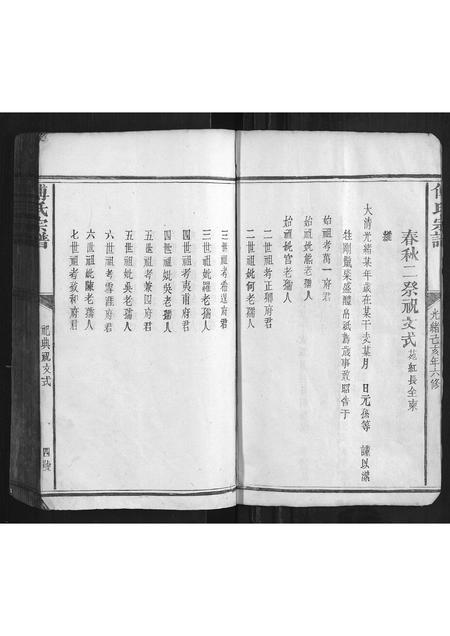 傅氏宗譜
光緒己亥年六修
春秋二祭祝文式 苑紅長全柬
維
大清光緒某年歲在某干支某月 日元孫等 謹以潔
牲剛鬣粢盛醴帛紙為歲事敢昭告于
始祖考萬一府君
始祖妣熊老孺人
始祖妣官老孺人
二世祖考正卿府君
二世祖妣何老孺人
三世祖考 府君
三世祖妣羅老孺人
四世祖考夷甫府君
四世祖妣吳老孺人
五世祖考兼四府君
五世祖妣吳老孺人
六世祖考雲涯府君
六世祖妣陳老孺人
七世祖考致和府君
傅氏宗譜
祀典祝文式
四陵